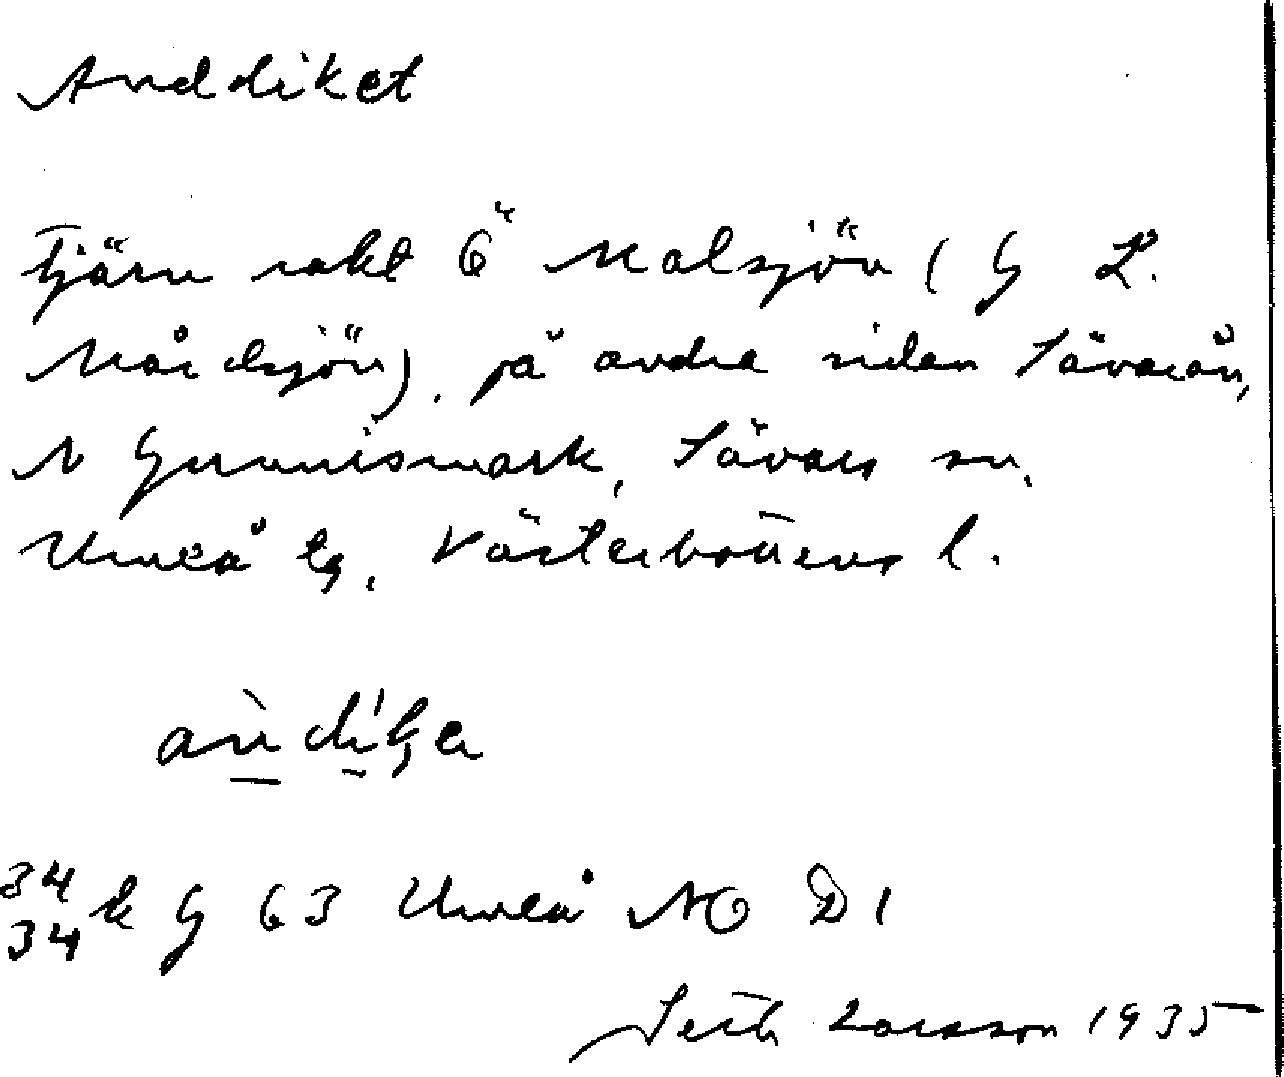 Anddiket
Tjärn rakt Ö Malsjön (G L.
Mårdsjön), på andra sidan Sävarån,
N Gunnismark, Sävars sn,
Umeå lg, Västerbottens l.
àndíka
34 34 k G 63 Umeå NO D 1
Seth Larsson 1935